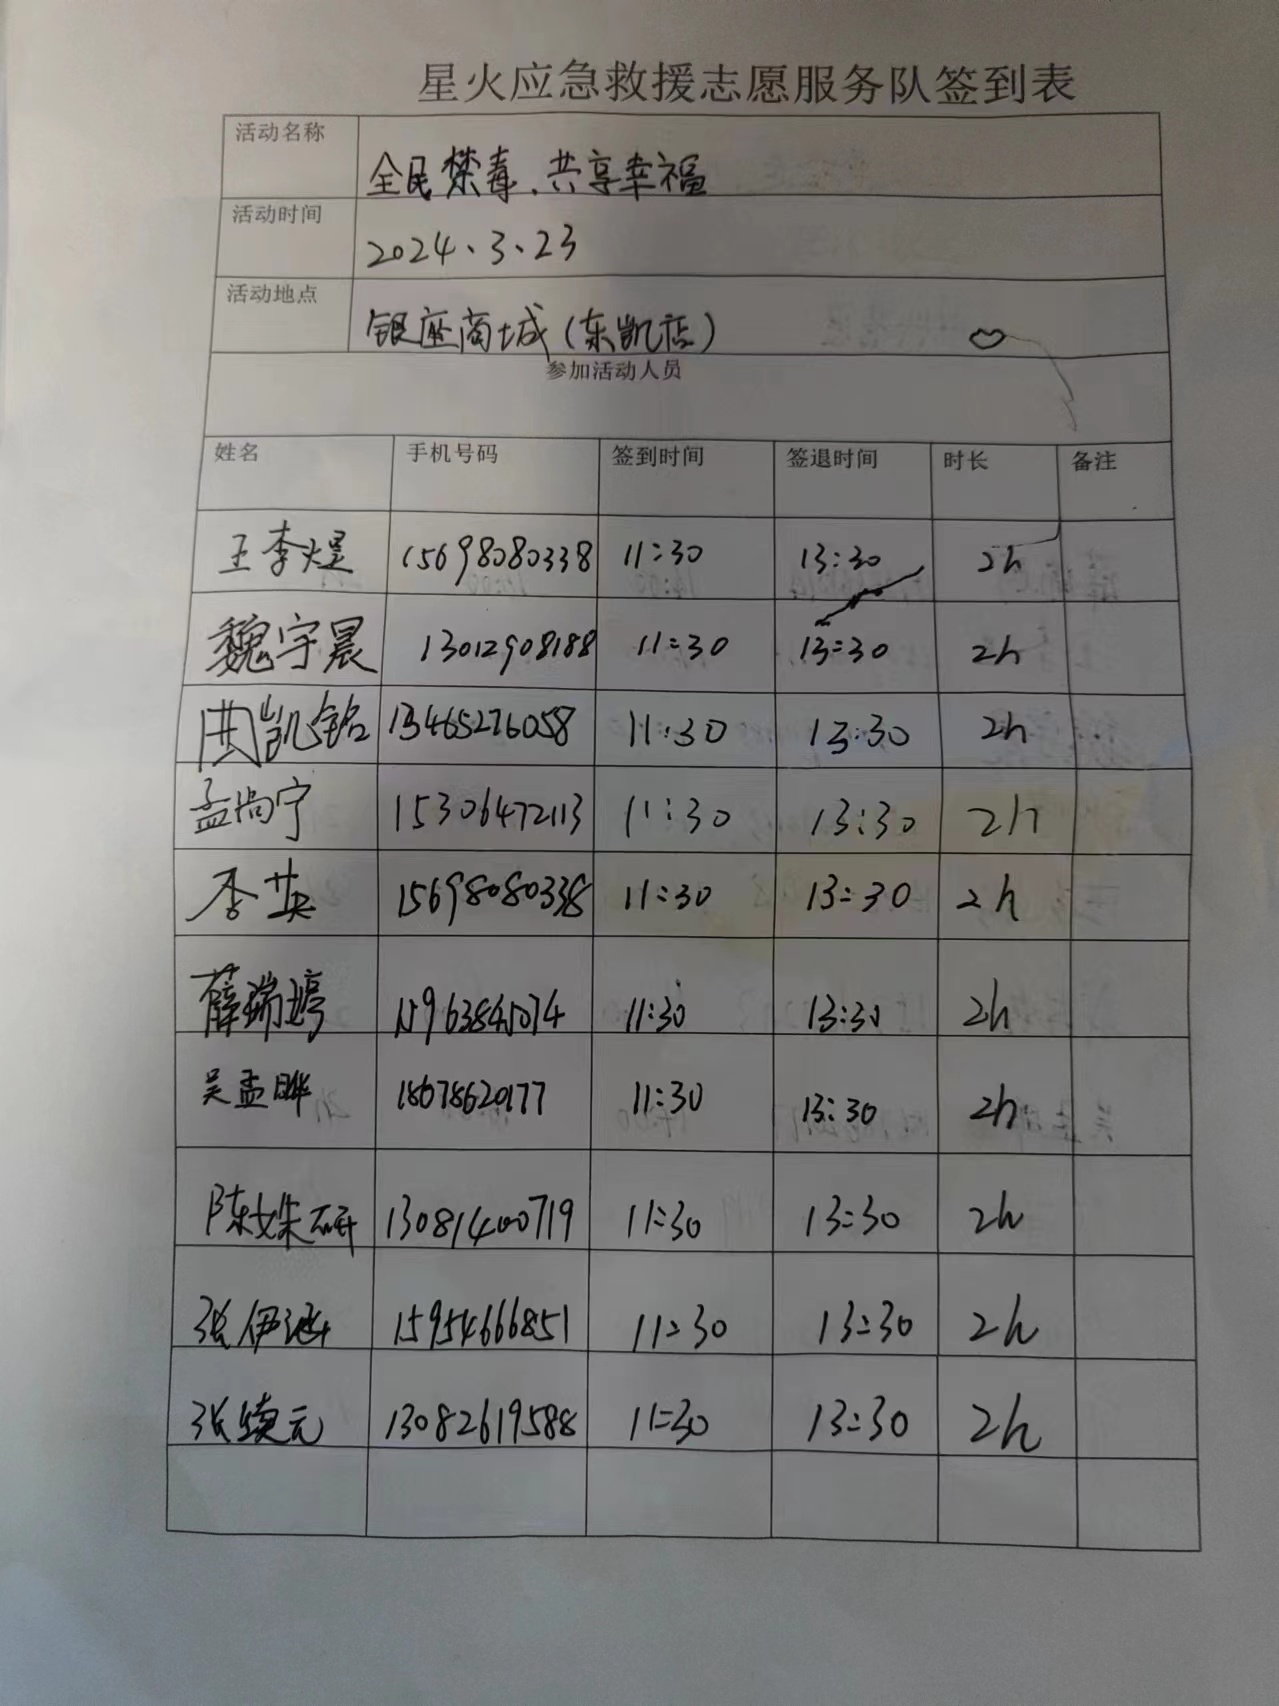 星火应急救援志愿服务队签到表
活动名称 全民禁毒、共享幸福
活动时间 2024、3、23
活动地点 银座商城(东凯店)
参加活动人员
姓名 手机号码 签到时间 签退时间 时长 备注
王李煜 15698080338 11:30 13:30 2h
魏宇晨 13012908188 11:30 13:30 2h
凯铭 13465276058 11:30 13:30 2h
孟尚宁 15306472113 11:30 13:30 2h
李英 15698080338 11:30 13:30 2h
薛瑞婷 15963845074 11:30 13:30 2h
吴孟晔 18678620177 11:30 13:30 2h
陈姝研 13081400719 11:30 13:30 2h
张伊涵 15954666851 11:30 13:30 2h
张元 13082619588 11:30 13:30 2h